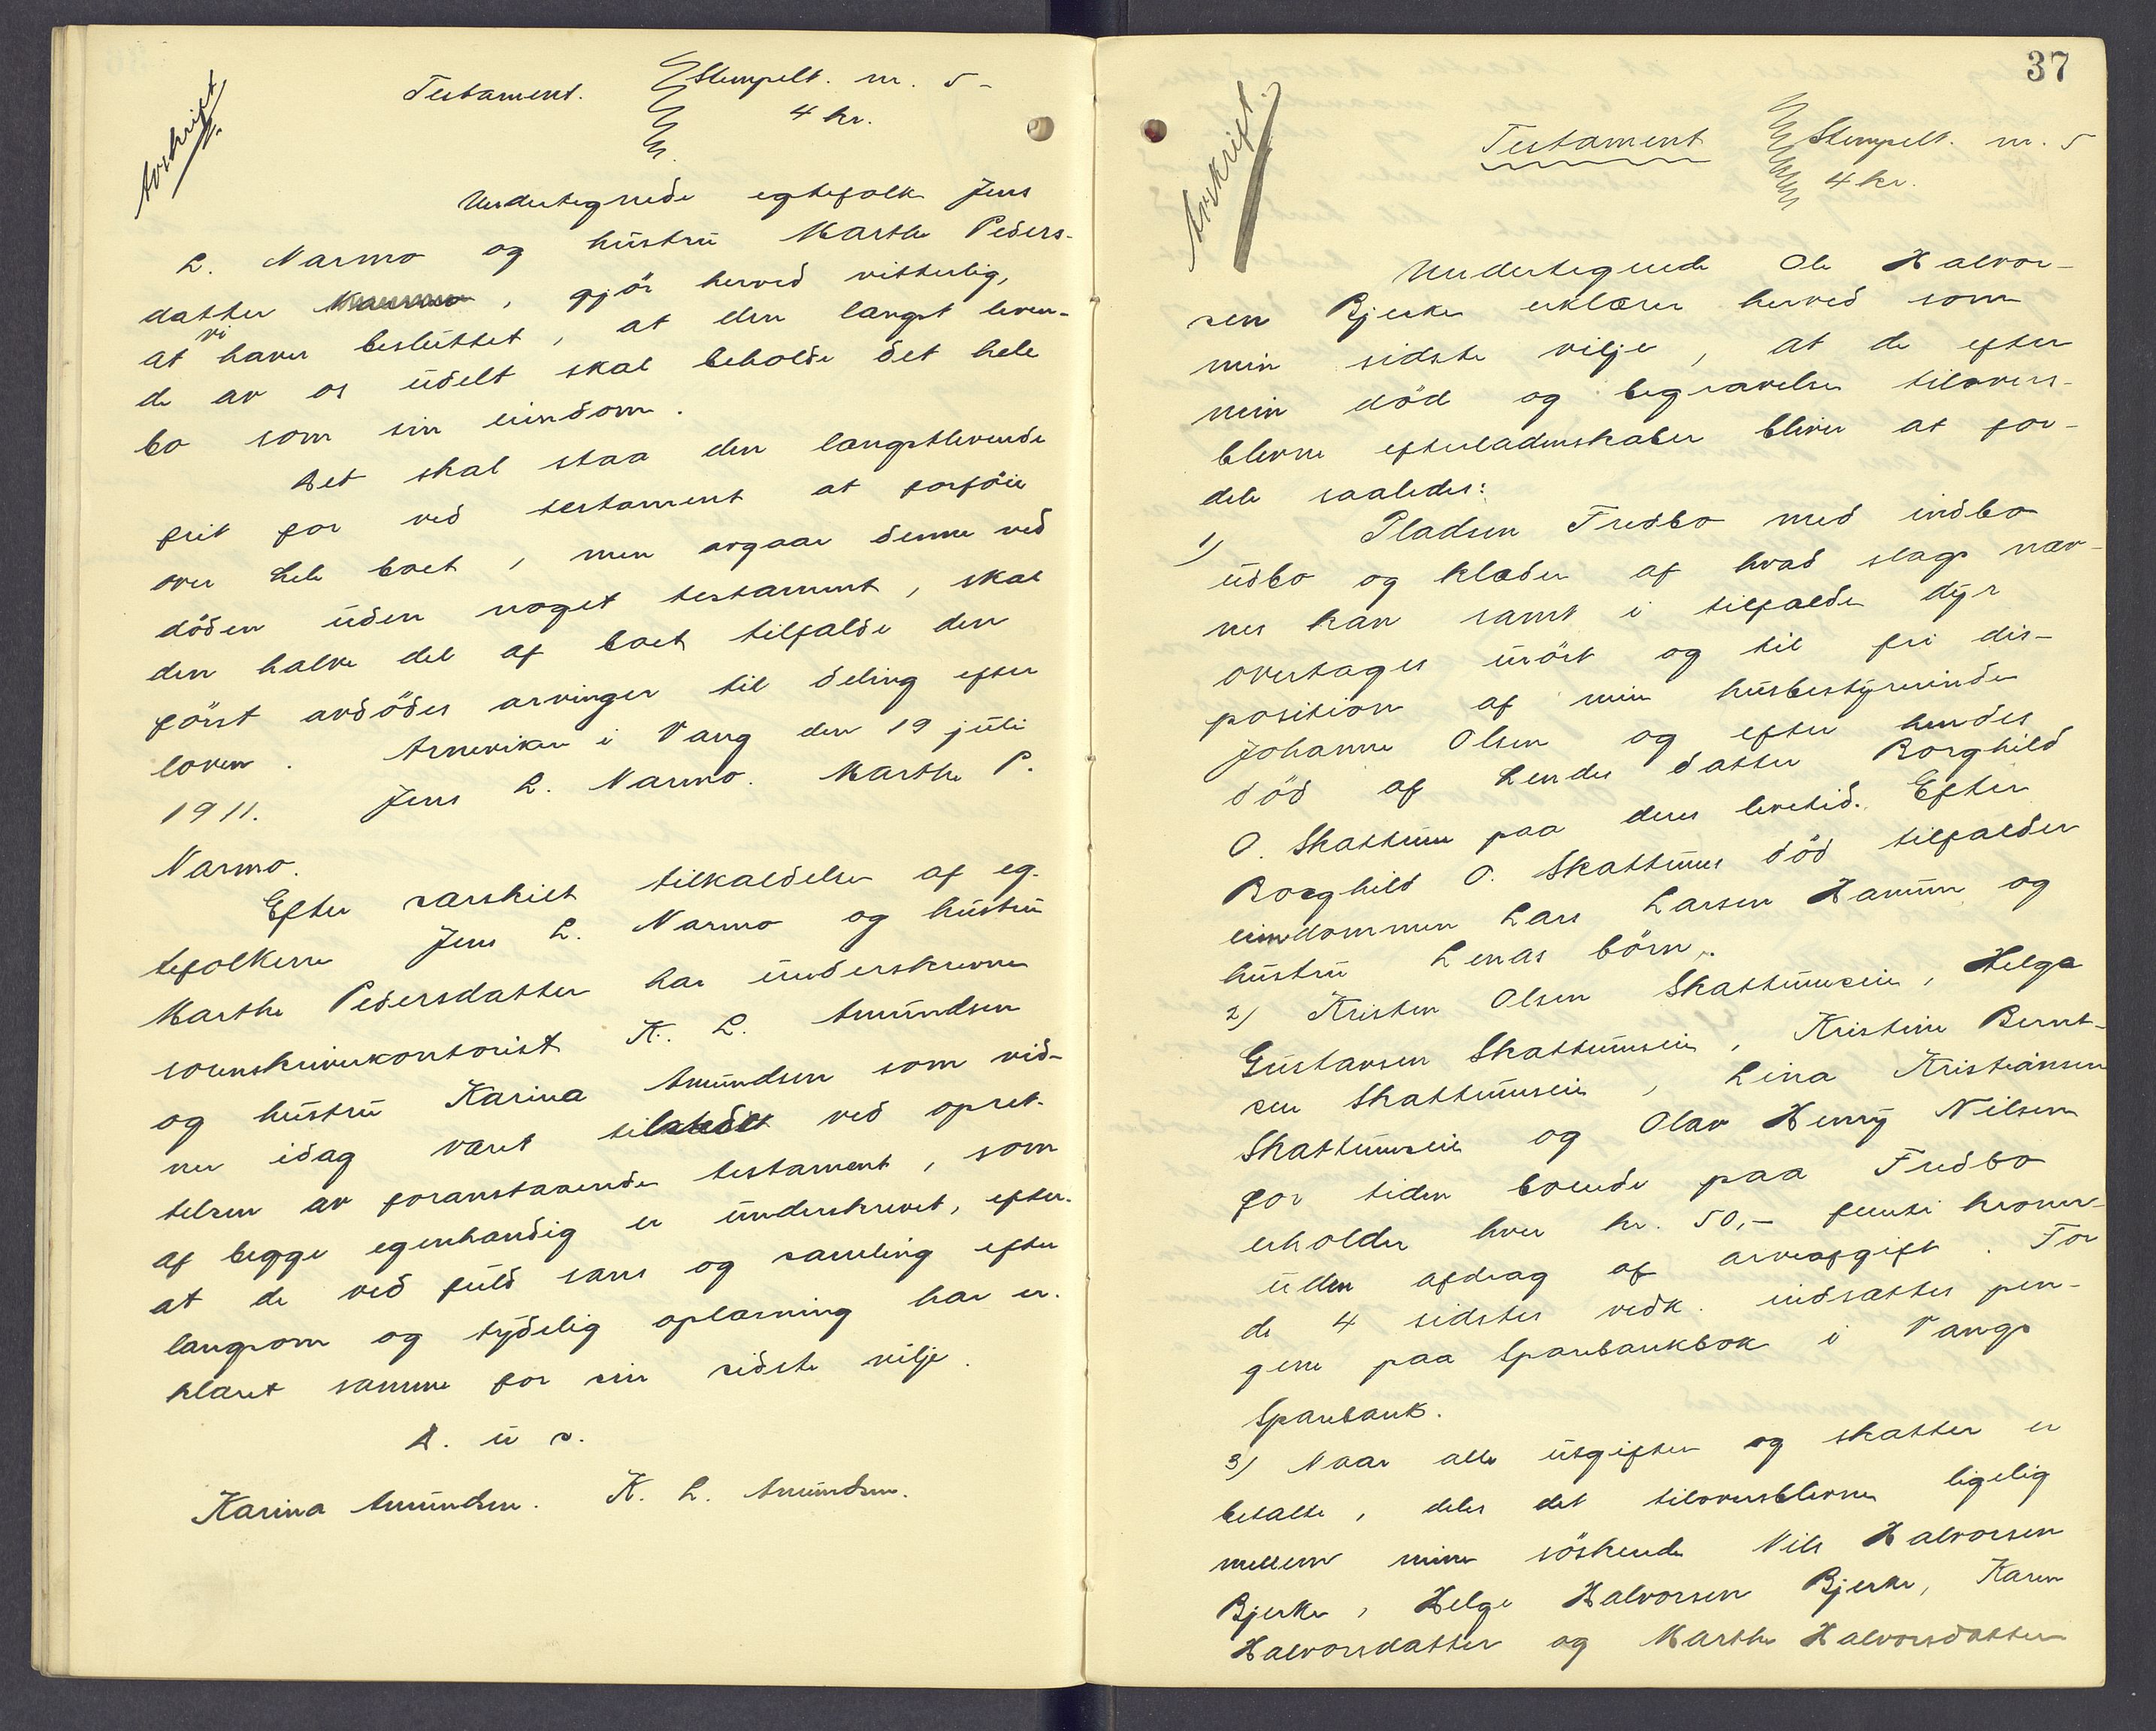 Avskrift.
Testament. Stempelt. nr. 5-
4 kr.
Undertegnede egtefolk Jens
L. Narmo og hustru Marthe Peders-
datter, gjör herved vitterlig,
at vi haver besluttet, at den længst leven-
de av os udelt skal beholde det hele
bo som sin eiendom.
Det skal staa den længstlevende
frit for ved testament at forföie
over hele boet, men avgaar denne ved
döden uden noget testament, skal
den halve del af boet tilfalde den
först avdödes arvinger til deling efter
loven. Arneviken i Vang den 19 juli
1911. Jens L. Narmo. Marthe P.
Narmo.
Efter særskilt tilkaldelse af eg-
tefolkene Jens L. Narmo og hustru
Marthe Pedersdatter har underskrevne
sorenskriverkontorist K. L. Amundsen
og hustru Karina Amundsen som vid-
ner idag været tilstede ved opret-
telsen av foranstaaende testament, som
af begge egenhændig er underskrevet, efter-
at de ved fuld sans og samling efter
langsom og tydelig oplæsning har er-
klæret samme for sin sidste vilje.
D. u s.
Karina Amundsen. K. L. Amundsen.
37
Avskrift.
Testament Stempelt. nr. 5
4 kr.
Undertegnede Ole Halvor-
sen Bjerke erklærer herved som
min sidste vilje, at de efter
min död og begravelse tilovers-
blevne efterladenskaber bliver at for-
dele saaledes:
1) Pladsen Fredbo med indbo
udbo og klæder af hvad slags næv-
nes kan samt i tilfælde dyr
overtages urört og til fri dis-
position af min husbestyrerinde
Johanne Olsen og efter hendes
död af hendes datter Borghild
O. Skattum paa deres levetid. Efter
Borghild O. Skattums död tilfalder
eiendommen Lars Larsen Hanum og
hustru Lenas börn.
2) Kristen Olsen Skattumseie, Helga
Gustavsen Skattumseie, Kristine Bernt-
sen Skattumseie, Lina Kristiansen
Skattumseie og Olav Henry Nilsen
for tiden boende paa Fredbo
erholder hver kr. 50,- femti kroner-
uden afdrag af arveafgift. For
de 4 sidstes vedk. indsættes pen-
gene paa Sparebankbok i Vangs
Sparebank.
3) Naar alle utgifter og skatter er
betalte, deles det tiloversblevne ligelig
mellem mine söskende Nils Halvorsen
Bjerke, Helge Halvorsen Bjerke, Karen
Halvorsdatter og Marthe Halvorsdatter